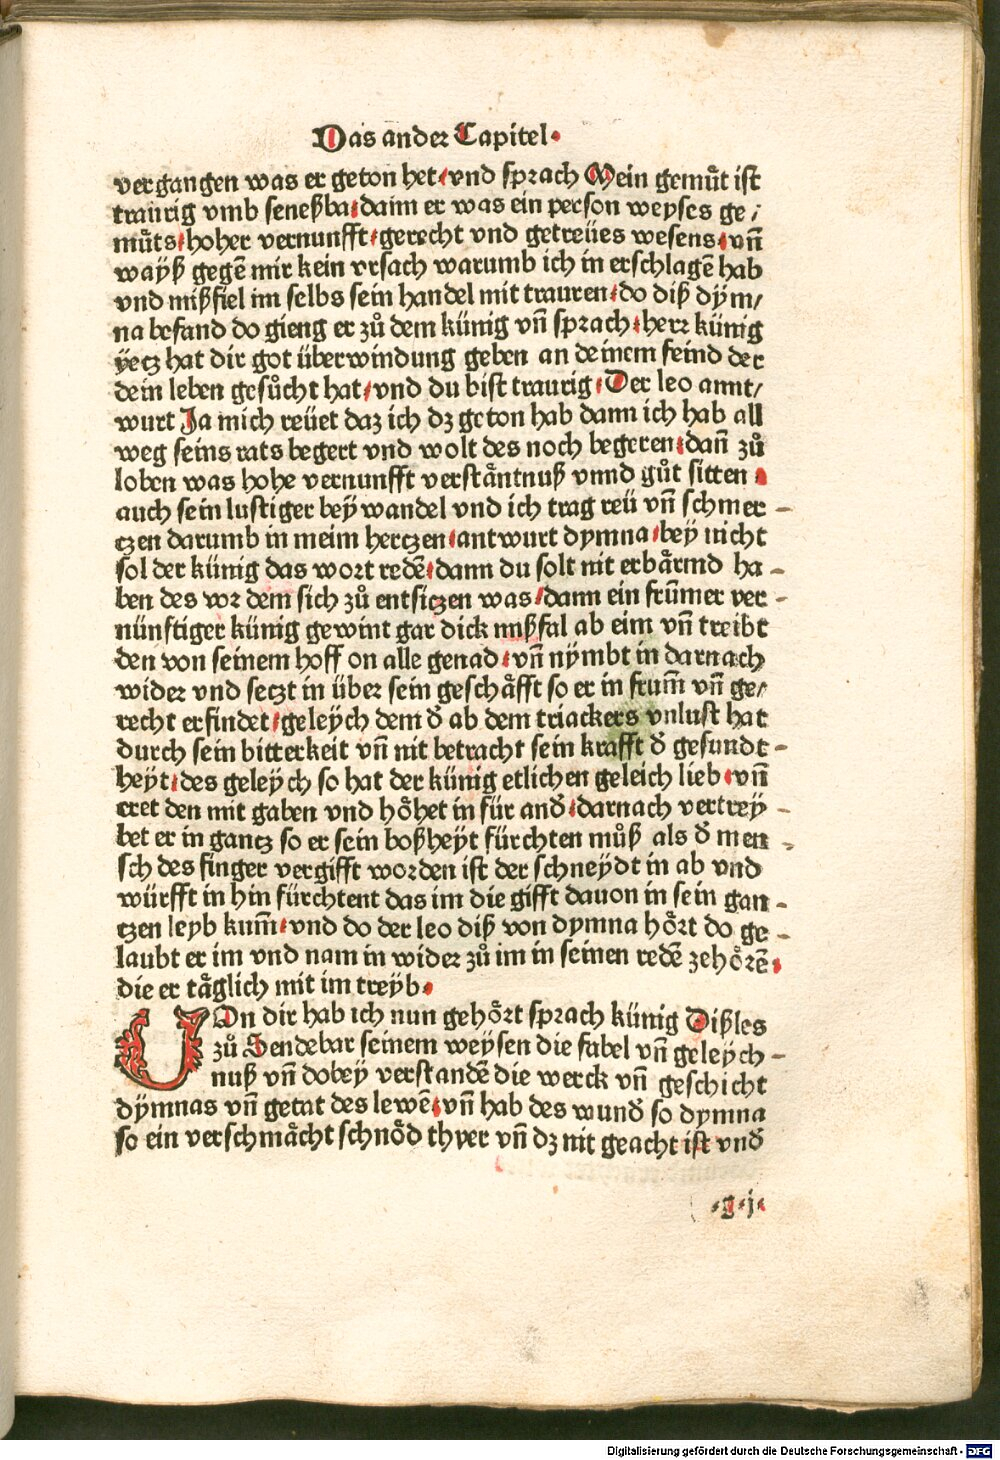 Das ander Capitel·
vergangen was er geton het·vnd sprach Mein gemuͤt ist
traurig vmb seneßba·daim er was ein person weyses ge⸗
muͤts·hoher vernunfft·gerecht vnd getreües wesens·vñ
wayß gegẽ mir kein vrsach warumb ich in erschlagẽ hab
vnd mißfiel im selbs sein handel mit trauren·do diß dÿm⸗
na befand do gieng er zuͦ dem künig vñ sprach·herr künig
ÿetz hat dir got überwindung geben an deinem feind der
dein leben gesuͦcht hat·vnd du bist traurig·Der leo annt⸗
wurt Ja mich reüet daz ich dz geton hab dann ich hab all
weg seins rats begert vnd wolt des noch begeren·dañ zuͦ
loben was hohe vernunfft verstaͤntnuß vnnd guͦt sitten·
auch sein lustiger beÿ wandel vnd ich trag reü vñ schmer-
tzen darumb in meim hertzen·antwurt dymna·beÿ nicht
sol der künig das wort redẽ·dann du solt nit erbaͤrmd ha-
ben des vor dem sich zuͦ entsitzen was·dann ein frũmer ver-
nünftiger künig gewint gar dick mißfal ab eim vñ treibt
den von seinem hoff on alle genad·vñ nÿmbt in darnach
wider vnd setzt in über sein geschaͤfft so er in frum̃ vñ ge⸗
recht erfindet·geleÿch dem đ ab dem triackers vnlust hat
durch sein bitterkeit vñ nit betracht sein krafft đ gesundt-
heÿt·des geleÿch so hat der künig etlichen geleich lieb·vñ
eret den mit gaben vnd hoͤhet in für anđ·darnach vertreÿ-
bet er in gantz so er sein boßheÿt fürchten muͦß als đ men-
sch des finger vergifft worden ist der schneÿdt in ab vnd
würfft in hin fürchtent das im die gifft dauon in sein gan-
tzen leyb kum̃·vnd do der leo diß von dymna hoͤrt do ge-
laubt er im vnd nam in wider zuͦ im in seinen redẽ zehoͤrẽ·
die er taͤglich mit im treÿb·
VOn dir hab ich nun gehoͤrt sprach künig Dißles
zuͦ Sendebar seinem weysen die fabel vñ geleÿch-
nuß vñ dobeÿ verstandẽ die werck vñ geschicht
dÿmnas vñ getat des lewẽ·vñ hab des wunđ so dymna
so ein verschmaͤcht schnoͤd thyer vñ dz nit geacht ist vnđ
·g·j·
Digitalisierung gefördert durch die Deutsche Forschungsgemeinschaft - DFG